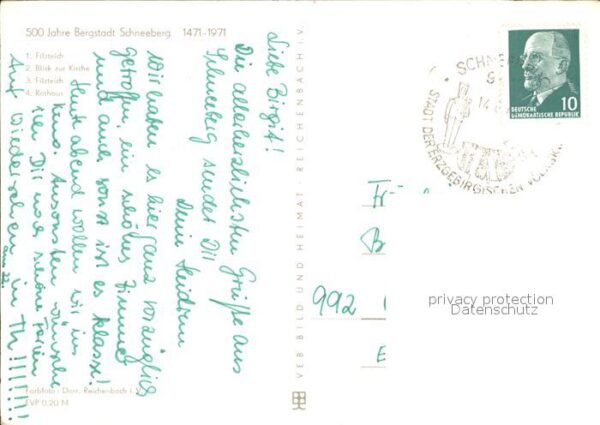 500 Jahre Bergstadt Schneeberg 1471-1971
1. Filzteich
2. Blick zur Kirche
3. Filzteich
4. Rathaus
Liebe Birgit!
Die allerherzlichsten Grüße aus
Schneeberg sendet Dir
Deine Heidrun
Wir haben es hier ganz vorzüglich
getroffen, ein schönes Zimmer
und auch sonst ist es klasse!
Heut abend wollen wir ins
Kino. Ansonsten wünsche
ich Dir noch schöne Ferien
Auf Wiedersehen in Th!!!!!!!
Farbfoto: Darr, Reichenbach i. V.
EVP 0,20 M
VEB BILD UND HEIMAT · REICHENBACH i. V.
SCHNEE
9
14
STADT DER ERZGEBIRGISCHEN VOLKSK
DEUTSCHE
DEMOKRATISCHE REPUBLIK
10
Fr
B
992
E
privacy protection
Datenschutz